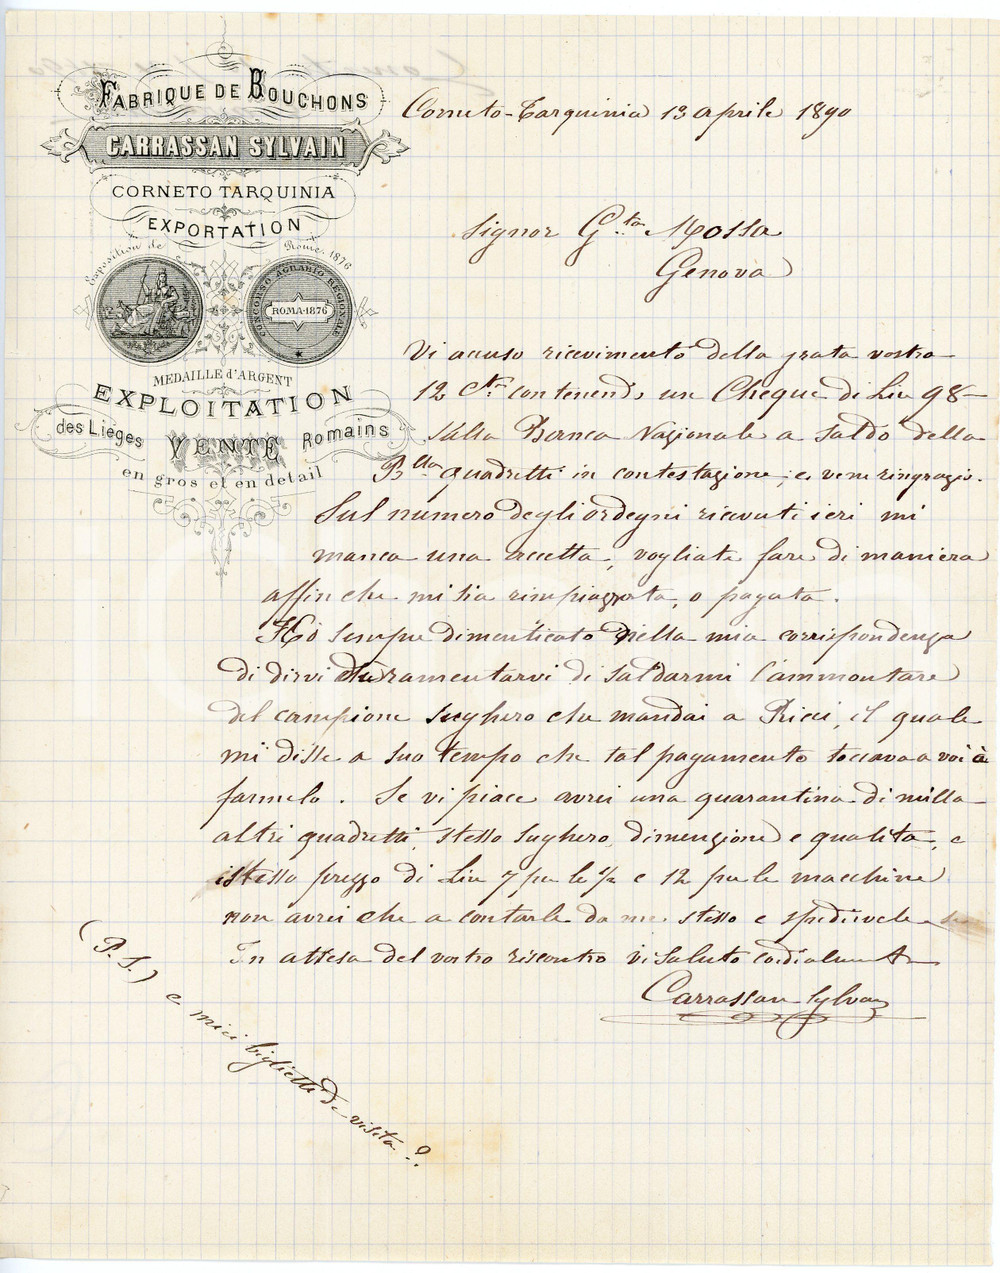 FABRIQUE DE BOUCHONS
CARRASSAN SYLVAIN
CORNETO TARQUINIA
EXPORTATION
Exposition de Rome, 1876
CONCORSO AGRARIO REGIONALE
ROMA-1876
MEDAILLE d'ARGENT
EXPLOITATION
des Lieges VENTE Romains
en gros et en detail
Corneto-Tarquinia 13 aprile 1890
Signor G.ta Mossa
Genova
Vi acuso ricevimento della grata vostra
12 Cte contenendo un Cheque di Lir 98-
sulla Banca Nazionale a saldo della
B.lla quadretti in contestazione, e vene ringrazio.
Sul numero degli ordegni ricevuti ieri mi
manca una accetta, vogliate fare di maniera
affinche mi sia rimpiazzata, o pagata.
Hò sempre dimenticato nella mia corrispondenza
di dirvi di ramentarvi di saldarmi l'ammontare
del campione sughero che mandai a Ricci, il quale
mi disse a suo tempo che tal pagamento toccava a voi à
farmelo. Se vi piace avrei una quarantina di milla
altri quadretti, stesso sughero, dimenzione e qualita, e
istesso prezzo di Lir 7 per le 1/2 e 12 per le macchine
non avrei che a contarle da me stesso e spedirvele
In attesa del vostro riscontro vi saluto cordialmente
Carrassan Sylvain
(P. S.) e miei biglietti di visita ?